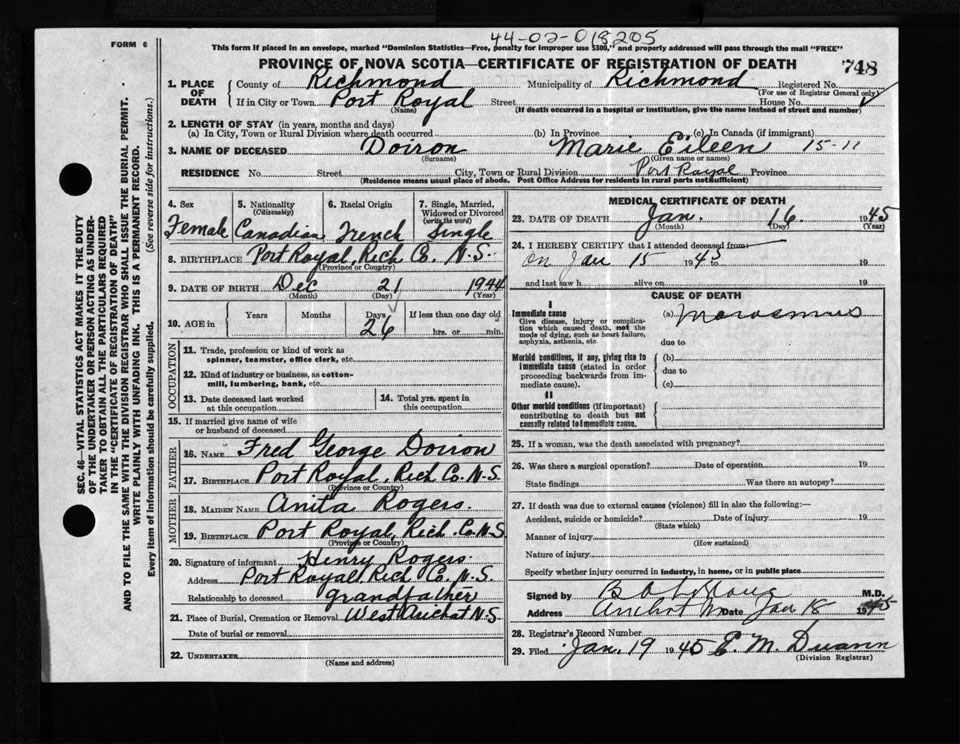 44-02-018205
FORM 6
This form if placed in an envelope, marked "Dominion Statistics—Free, penalty for improper use $300," and properly addressed will pass through the mail "FREE"
PROVINCE OF NOVA SCOTIA—CERTIFICATE OF REGISTRATION OF DEATH
748
1. PLACE OF DEATH
County of Richmond Municipality of Richmond Registered No.
(For use of Registrar General only)
If in City or Town Port Royal Street House No.
(Name) (If death occurred in a hospital or institution, give the name instead of street and number)
2. LENGTH OF STAY (in years, months and days)
(a) In City, Town or Rural Division where death occurred (b) In Province (c) In Canada (if immigrant)
3. NAME OF DECEASED Doiron Marie Eileen 15-11
(Surname) (Given name or names)
RESIDENCE No. Street City, Town or Rural Division Port Royal Province
(Residence means usual place of abode. Post Office Address for residents in rural parts not sufficient)
4. Sex 5. Nationality (Citizenship) 6. Racial Origin 7. Single, Married, Widowed or Divorced (write the word)
Female Canadian French Single
8. BIRTHPLACE Port Royal, Rich Co. N.S.
(Province or Country)
9. DATE OF BIRTH Dec 21 1944
(Month) (Day) (Year)
10. AGE in Years Months Days If less than one day old
26 hrs. or min.
OCCUPATION
11. Trade, profession or kind of work as spinner, teamster, office clerk, etc.
12. Kind of industry or business, as cotton-mill, lumbering, bank, etc.
13. Date deceased last worked at this occupation 14. Total yrs. spent in this occupation
15. If married give name of wife or husband of deceased
FATHER
16. NAME Fred George Doiron
17. BIRTHPLACE Port Royal, Rich Co. N.S.
(Province or Country)
MOTHER
18. MAIDEN NAME Anita Rogers.
19. BIRTHPLACE Port Royal, Rich. Co. N.S
(Province or Country)
20. Signature of informant Henry Rogers.
Address Port Royal, Rich Co. N.S.
Relationship to deceased grandfather
21. Place of Burial, Cremation or Removal West Arichat N.S.
Date of burial or removal
22. UNDERTAKER
(Name and address)
MEDICAL CERTIFICATE OF DEATH
23. DATE OF DEATH Jan. 16 1945
(Month) (Day) (Year)
24. I HEREBY CERTIFY that I attended deceased from
on Jan 15 1945 to 19
and last saw h alive on 19
CAUSE OF DEATH
I
Immediate cause (a) Marasmus
Give disease, injury or complication which caused death, not the mode of dying, such as heart failure, asphyxia, asthenia, etc.
due to
Morbid conditions, if any, giving rise to immediate cause (stated in order proceeding backwards from immediate cause).
(b)
due to
(c)
II
Other morbid conditions (if important) contributing to death but not causally related to immediate cause.
25. If a woman, was the death associated with pregnancy?
26. Was there a surgical operation? Date of operation 19
State findings Was there an autopsy?
27. If death was due to external causes (violence) fill in also the following:—
Accident, suicide or homicide? Date of injury 19
(State which)
Manner of injury
(How sustained)
Nature of injury
Specify whether injury occurred in industry, in home, or in public place
Signed by M.D.
Address Arichat Date Jan 18 1945
28. Registrar's Record Number
29. Filed Jan. 19 1945 E. M.
(Division Registrar)
SEC. 46—VITAL STATISTICS ACT MAKES IT THE DUTY
OF THE UNDERTAKER OR PERSON ACTING AS UNDER-
TAKER TO OBTAIN ALL THE PARTICULARS REQUIRED
IN THE "CERTIFICATE OF REGISTRATION OF DEATH"
AND TO FILE THE SAME WITH THE DIVISION REGISTRAR WHO SHALL ISSUE THE BURIAL PERMIT.
WRITE PLAINLY WITH UNFADING INK. THIS IS A PERMANENT RECORD.
Every item of information should be carefully supplied. (See reverse side for instructions.)